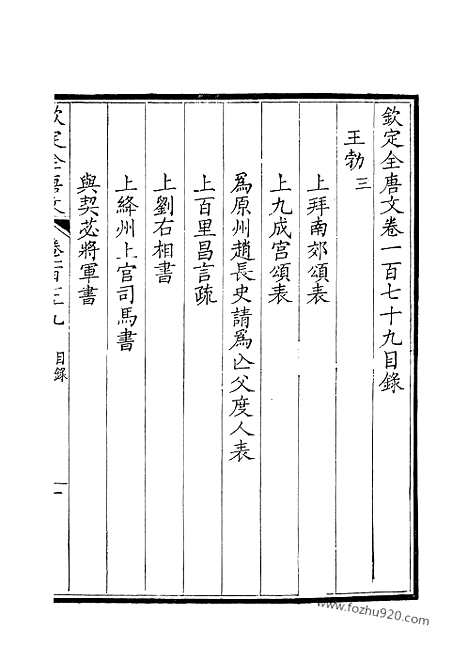 欽定全唐文卷一百七十九目錄
王勃三
上拜南郊頌表
上九成宮頌表
為原州趙長史請為亾父度人表
上百里昌言疏
上劉右相書
上絳州上官司馬書
與契苾將軍書
欽定全唐文 卷一百七十九 目錄 一
www.fozhu920.com